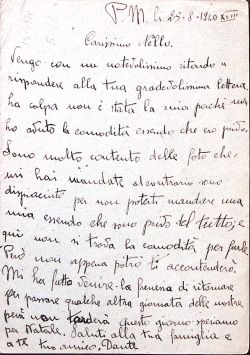 P.M. li 25-8-1940 XVIII
Carissimo Nello.
Vengo con un notevolissimo ritardo a
rispondere alla tua gradevolissima lettera
ha colpa non è stata la mia perché non
ho avuto la comodità essendo che ero privo.
Sono molto contento delle foto che
mi hai mandate al contrario sono
dispiaciuto per non poterti mandere una
mia essendo che sono privo del tutto, e
qui non si trova la comodità per farle
Però non appena potrò ti accontenterò.
Mi ha fatto venire la smania di ritornare
per passare qualche altra giornata delle nostre
però non tarderà questo giorno speriamo
per Natale. Saluti alla tua famiglia e
a te tuo amico, Dante